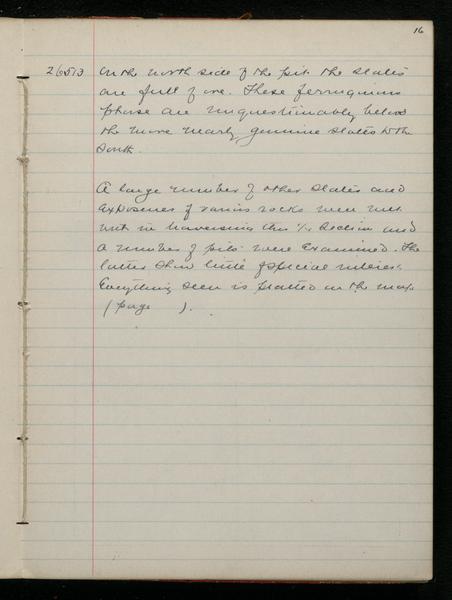 16
26513 On the north side of the pit the slates
are full of ore. These ferruginous
phase are unquestionably below
the more nearly genuine slates to the
South.
A large number of other slates and
exposures of various rocks were met
with in traversing this 1/4 Section and
a number of pits were examined. The
latter show little of special interest.
Everything seen is platted on the map
(page ).